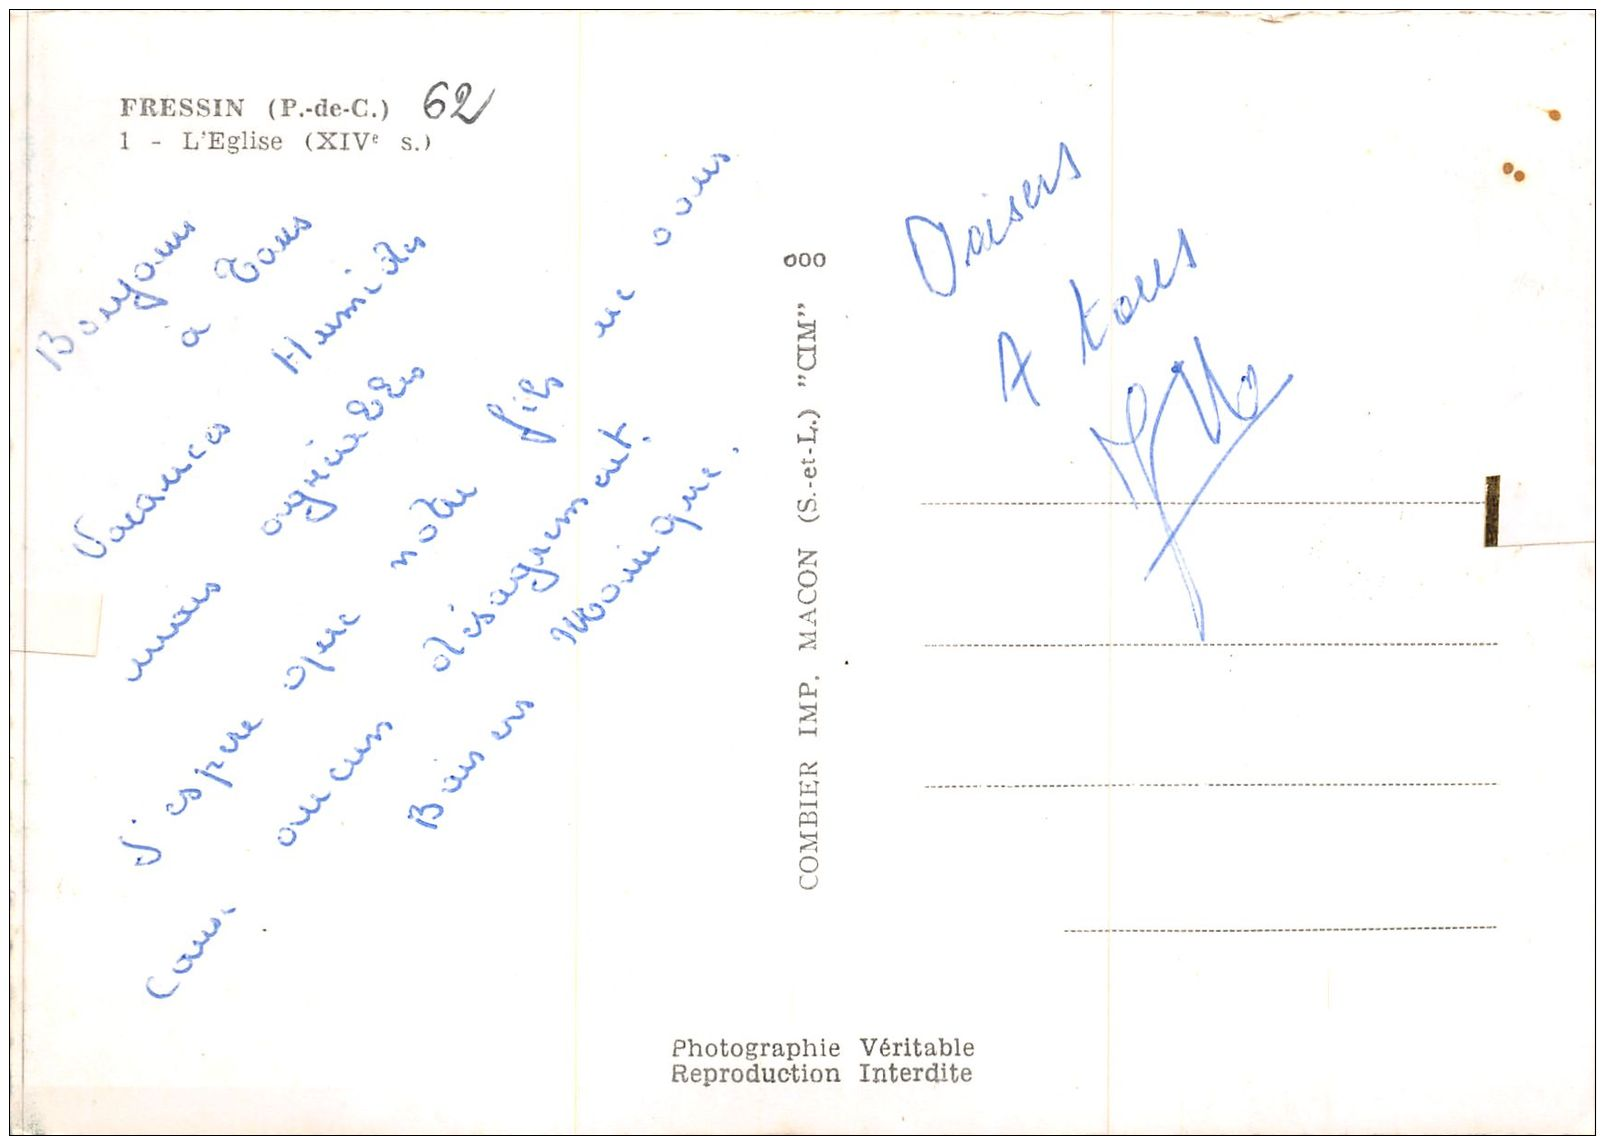 FRESSIN (P.-de-C.) 62
1 - L'Eglise (XIVe s.)
Bonjour
à Tous
Vacances Humides
mais agréables
J'espère que notre fils ne vous
cause aucun désagrement.
Baisers Monique.
000
COMBIER IMP. MACON (S.-et-L.) "CIM"
Baisers
A tous
Photographie Véritable
Reproduction Interdite